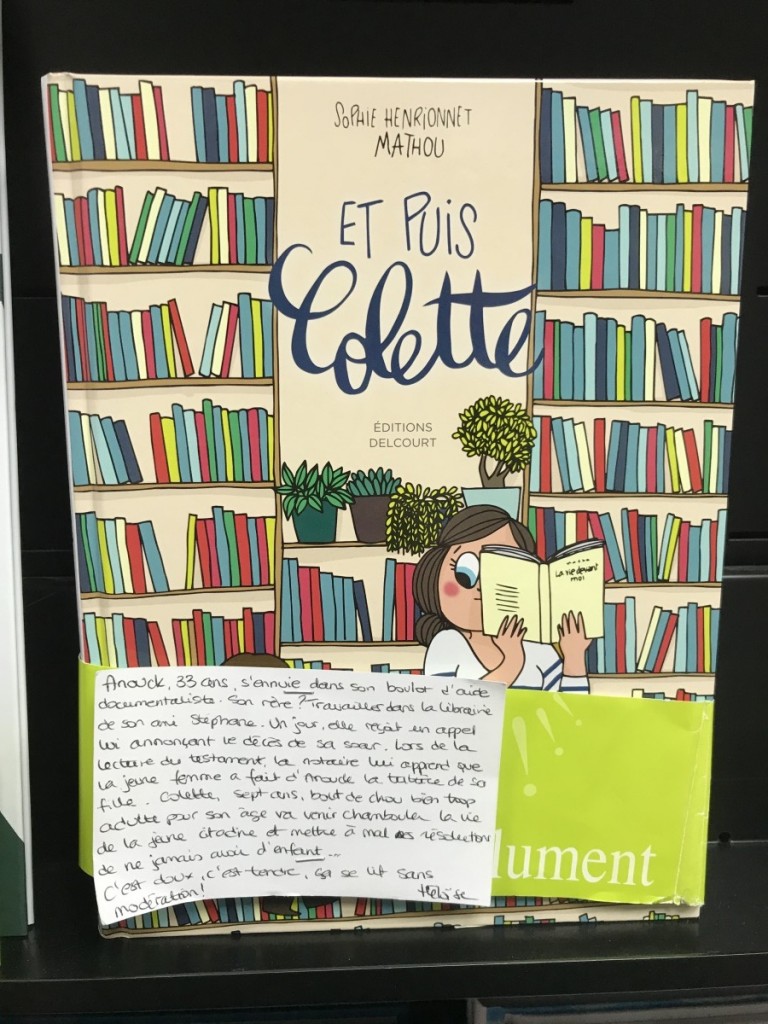 SOPHIE HENRIONNET
MATHOU
ET PUIS
Colette
ÉDITIONS
DELCOURT
La vie devant
moi
Anouck, 33 ans, s'ennuie dans son boulot d'aide
documentaliste. Son rêve ? Travailler dans la librairie
de son ami Stéphane. Un jour, elle reçoit un appel
lui annonçant le décès de sa sœur. Lors de la
lecture du testament, la notaire lui apprend que
la jeune femme a fait d'Anouck la tutrice de sa
fille. Colette, sept ans, bout de chou bien trop
adulte pour son âge va venir chambouler la vie
de la jeune citadine et mettre à mal ses résolutions
de ne jamais avoir d'enfant...
C'est doux, c'est tendre, ça se lit sans
modération !
!!!
lument